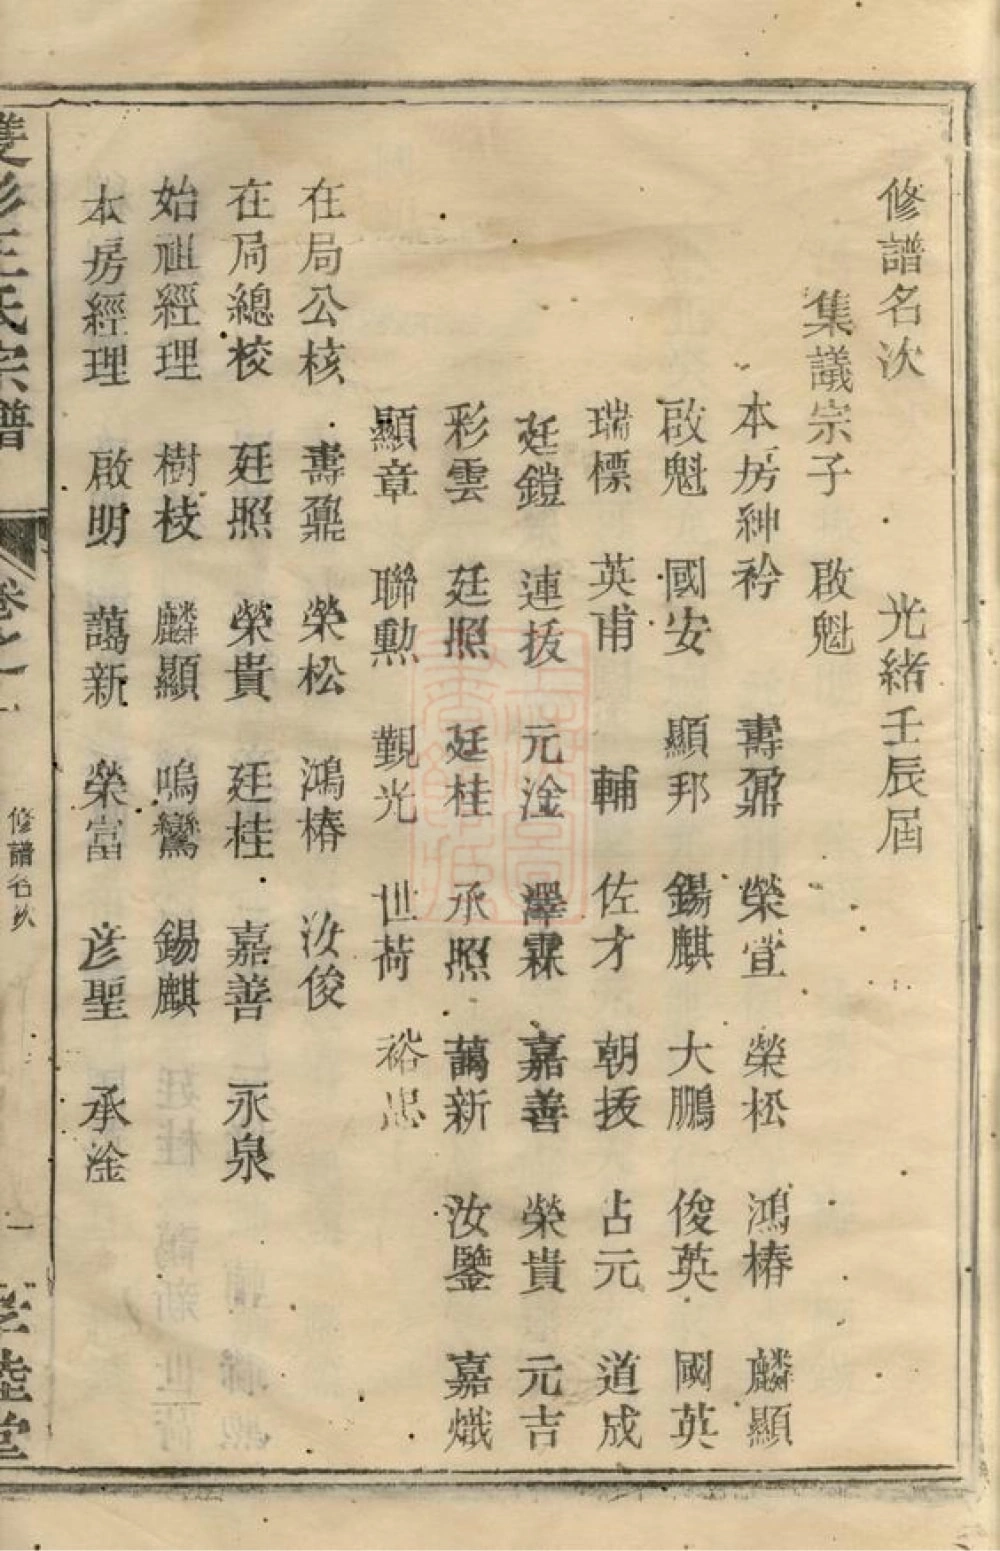 修譜名次 光緒壬辰屆
集議宗子 啟魁
本房紳衿 壽鼐 榮萱 榮松 鴻椿 麟顯
啟魁 國安 顯邦 錫麒 大鵬 俊英 國英
瑞標 英甫 輔 佐才 朝拔 占元 道成
廷鎧 連拔 元淦 澤霖 嘉善 榮貴 元吉
彩雲 廷照 廷桂 承照 藹新 汝鑒 嘉熾
顯章 聯勳 觀光 世荷 裕忠
在局公核 壽鼐 榮松 鴻椿 汝俊
在局總校 廷照 榮貴 廷桂 嘉善 永泉
始祖經理 樹枝 麟顯 鳴鸞 錫麒
本房經理 啟明 藹新 榮富 彦聖 承淦
雙杉王氏宗譜
卷之一
修譜名次
一
孝睦堂